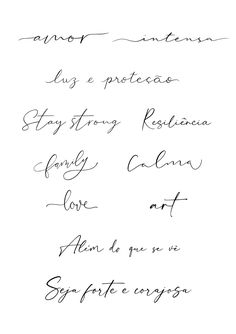 amor intensa
luz e proteção
Stay strong Resiliência
family Calma
love art
Além do que se vê
Seja forte e corajosa